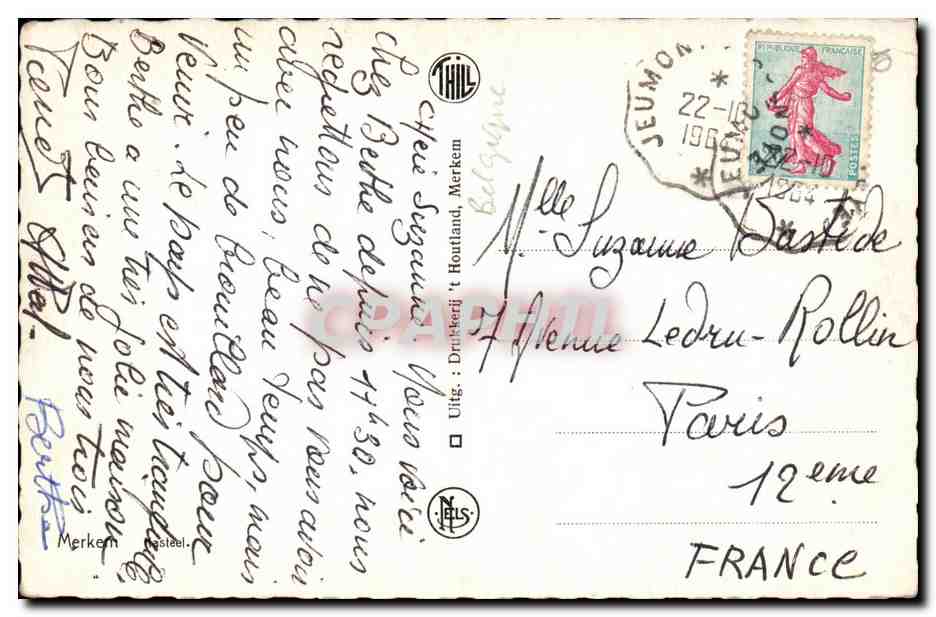 Chère Suzanne. Nous voici
chez Berthe depuis 17h30, nous
regrettons de ne pas vous avoir
avec nous, beau temps, mais
un peu de brouillard pour
venir. Le pays est très tranquille
Berthe a une très jolie maison
Bons baisers de nous trois
Berthe
Merkem Kasteel.
THILL
NELS
Uitg. : Drukkerij 't Houtland, Merkem
Belgique
JEUMON
22-10
1964
REPUBLIQUE FRANÇAISE
POSTES
Mlle Suzanne Bastède
7 Avenue Ledru-Rollin
Paris
12eme
FRANCE
CPAPHIL